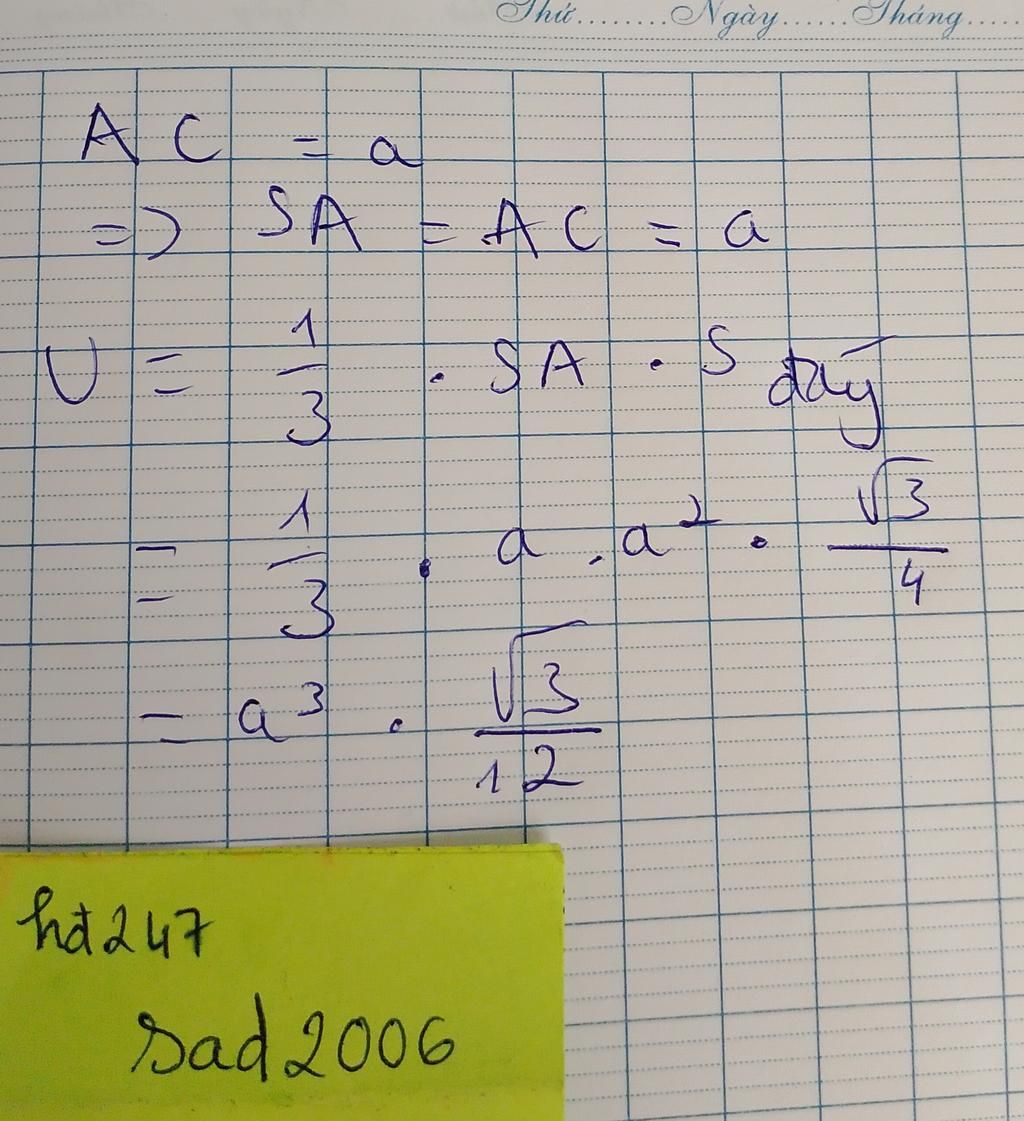 Thứ........Ngày......Tháng......
AC = a
=> SA = AC = a
V = 1/3 . SA . S đáy
= 1/3 . a . a² . √3/4
= a³ . √3/12
hđ247
sad2006